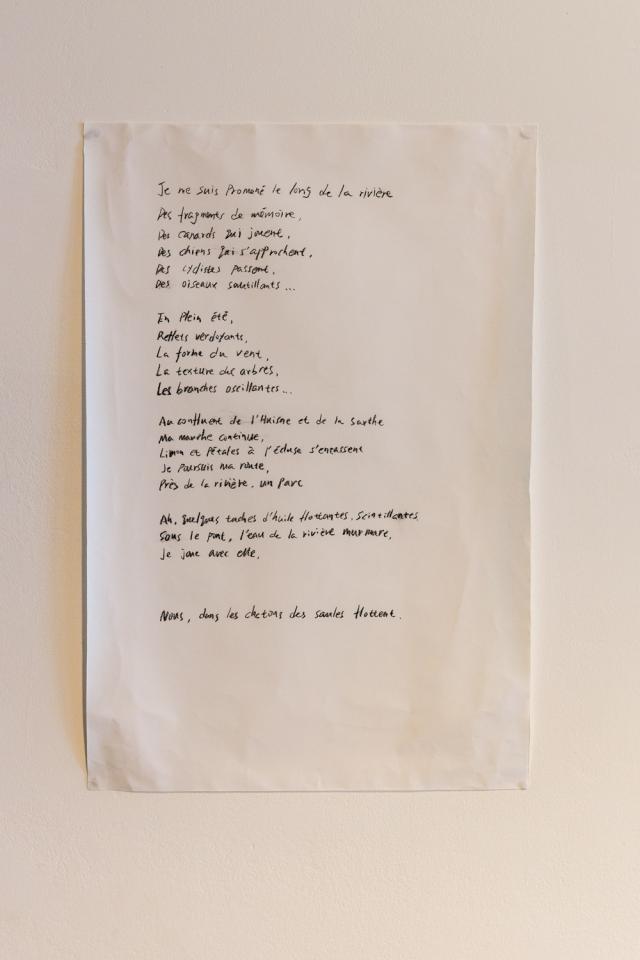 Je me suis Promené le long de la rivière
Des fragments de mémoire,
Des canards qui jouent,
Des chiens qui s'approchent,
Des cyclistes passent,
Des oiseaux sautillants...
En Plein été,
Reflets verdoyants,
La forme du vent,
La texture des arbres,
Les branches oscillantes...
Au confluent de l'Huisne et de la Sarthe
Ma marche continue,
Limon et Pétales à l'écluse s'entassent
Je Poursuis ma route,
Près de la rivière, un Parc
Ah, quelques taches d'huile flottantes, scintillantes,
Sous le pont, l'eau de la rivière murmure,
Je joue avec elle,
Nous, dans les chatons des saules flottent.